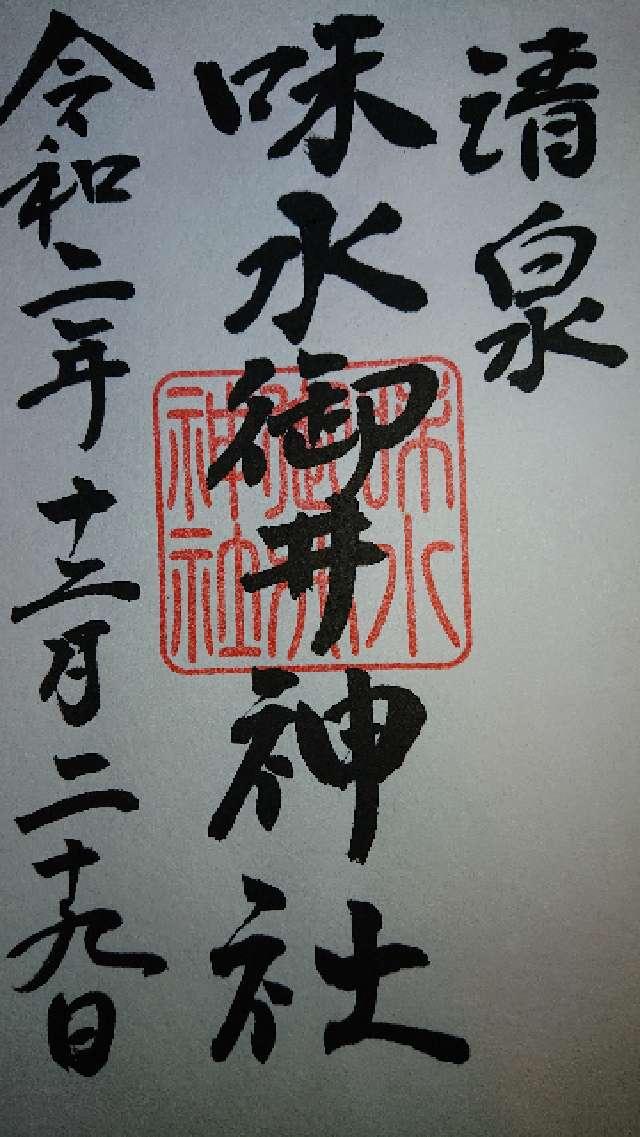 清泉
味水御井神社
令和二年十二月二十九日
味水御井神社